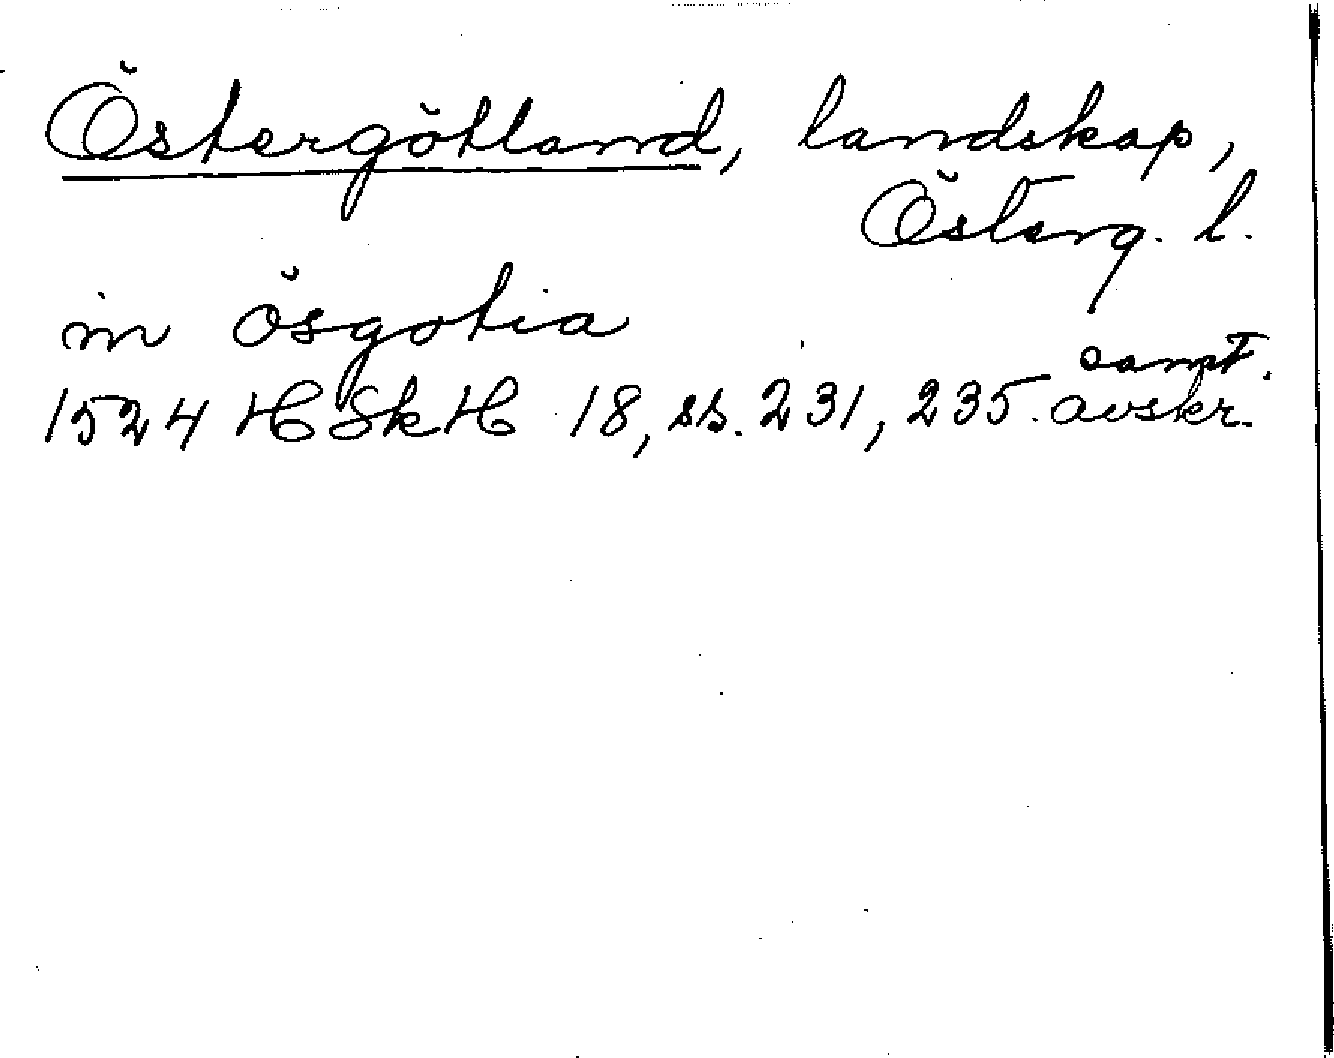 Östergötland, landskap,
Österg. l.
in ösgotia
samt.
1524 HSkH 18, ss. 231, 235. avskr.